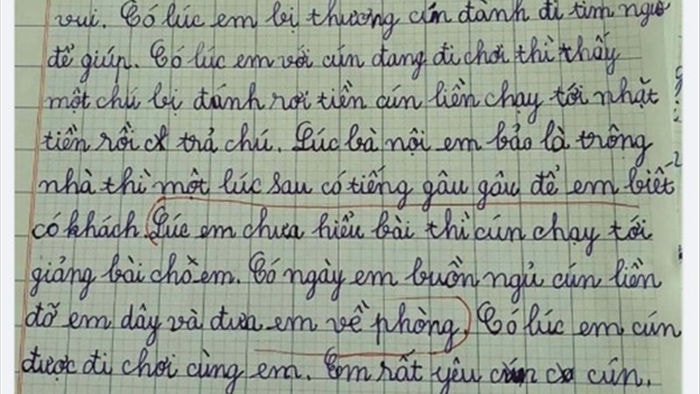 vui. Có lúc em bị thương cún đành đi tìm người
để giúp. Có lúc em với cún đang đi chơi thì thấy
một chú bị đánh rơi tiền cún liền chạy tới nhặt
tiền rồi trả chú. Lúc bà nội em bảo là trông
nhà thì một lúc sau có tiếng gâu gâu để em biết
có khách. Lúc em chưa hiểu bài thì cún chạy tới
giảng bài chỏ em. Có ngày em buồn ngủ cún liền
đỡ em dây và đưa em về phòng. Có lúc em cún
được đi chơi cùng em. Em rất yêu cún.